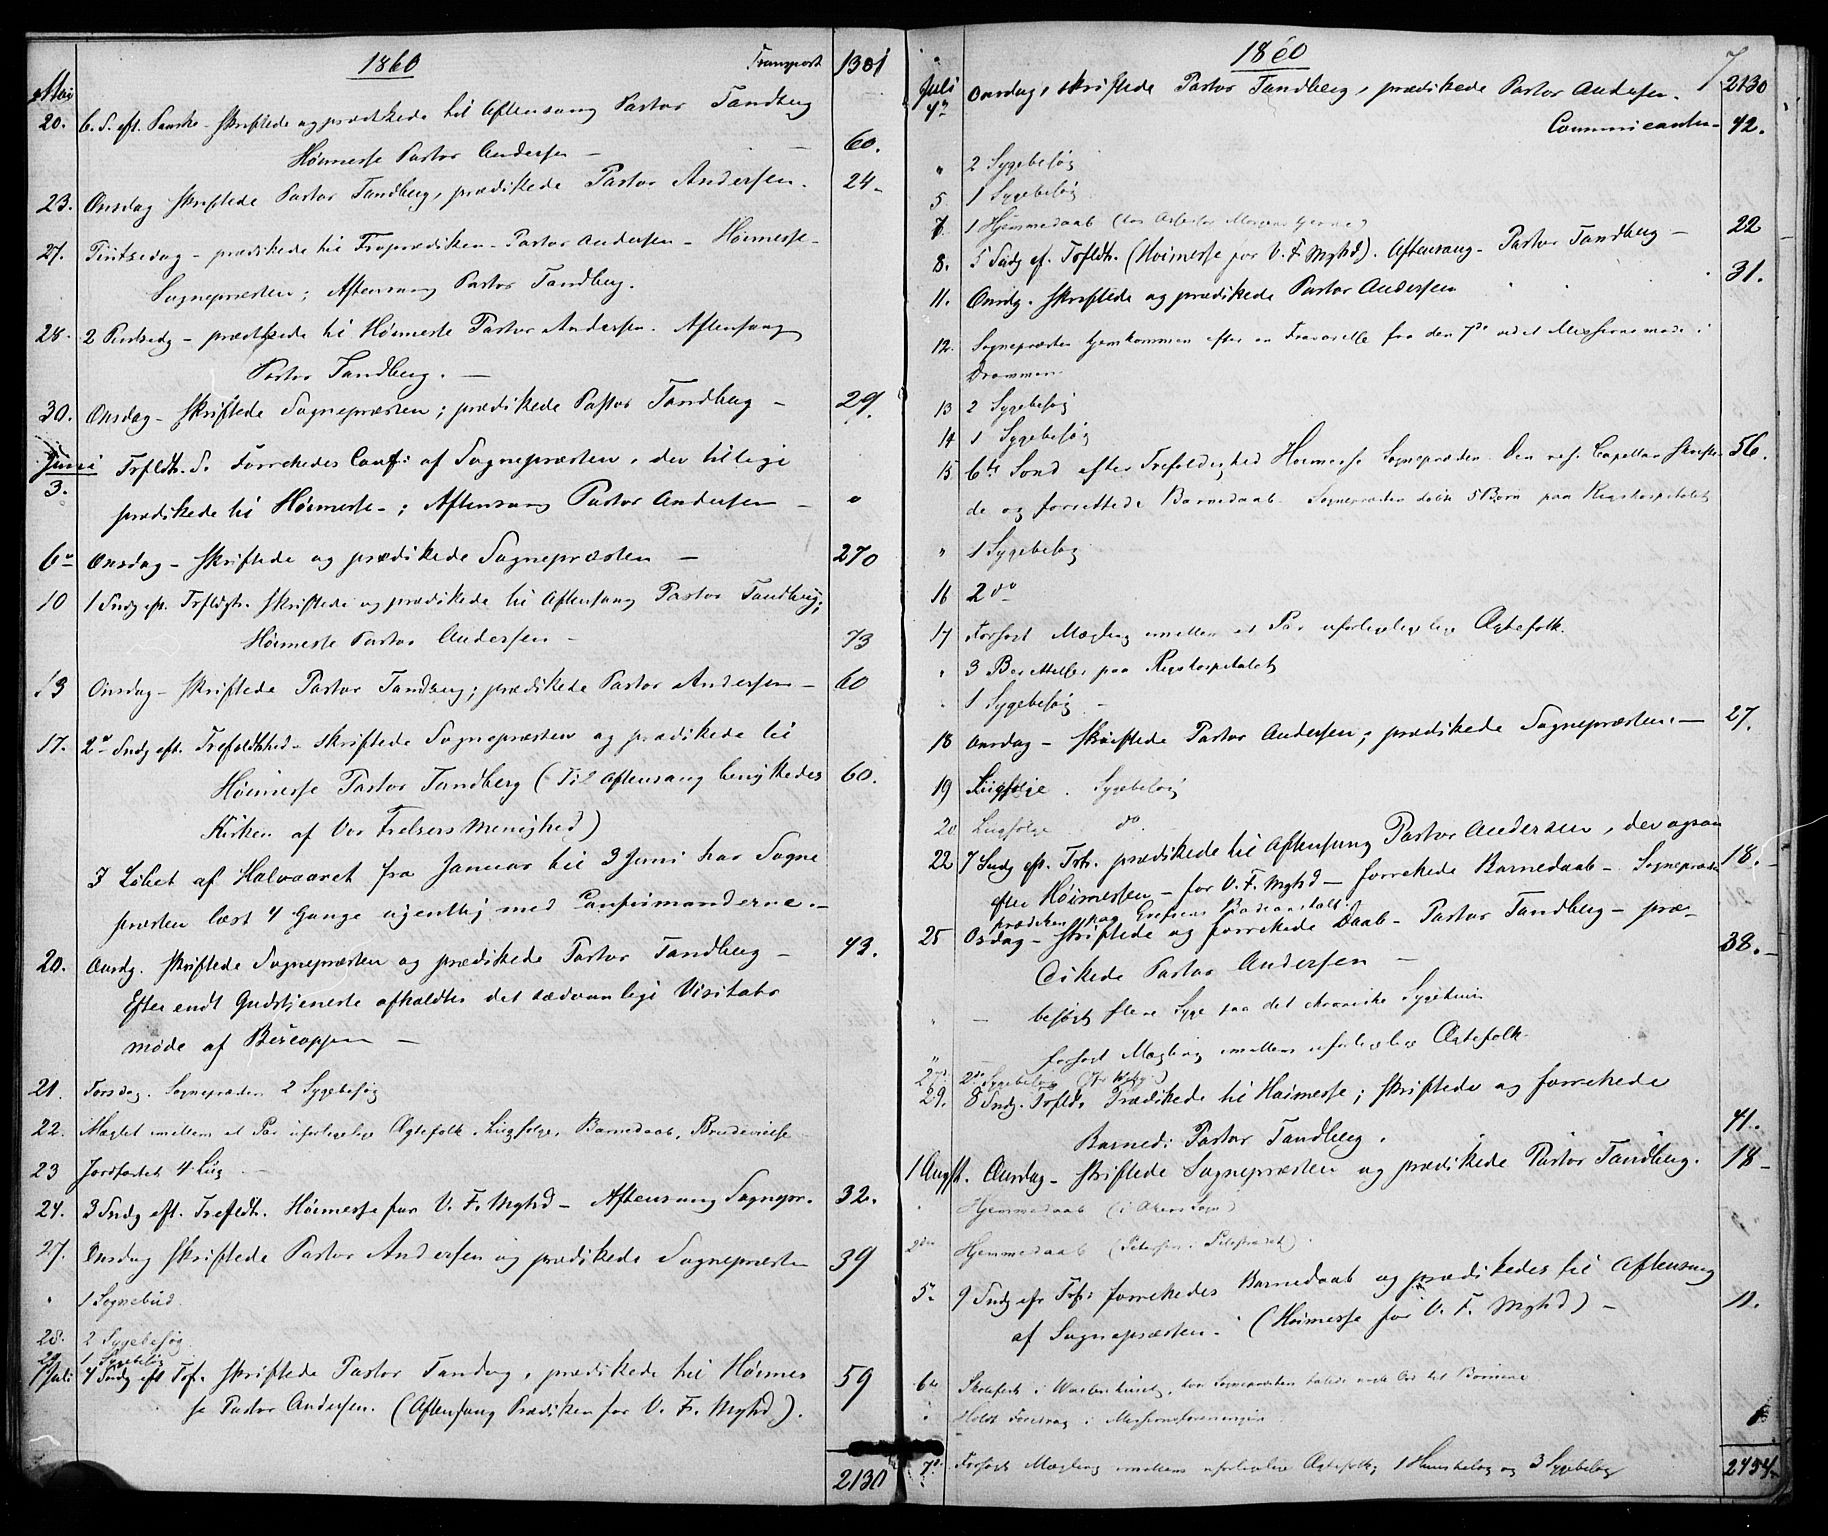 1860
Transport 1301
Mai
20. 6. S. eft. Paaske - skriftede og prædikede til Aftensang Pastor Tandberg
Høimesse Pastor Andersen — 60.
23. Onsdag skriftede Pastor Tandberg, prædikede Pastor Andersen. 24-
27. Pintsedag - prædikede til Froprædiken - Pastor Andersen - Høimesse -
Sognepræsten; Aftensang Pastor Tandberg.
28. 2 Pintsedg - prædikede til Høimesse Pastor Andersen. Aftensang
Pastor Tandberg. —
30. Onsdag - skriftede Sognepræsten; prædikede Pastor Tandberg - 29.
Juni
3. Trfldh. S. Forrettedes Conf: af Sognepræsten, der tillige
prædikede til Høimesse -; Aftensang Pastor Andersen - "
6 Onsdag - skriftede og prædikede Sognepræsten — 270
10 1 Sndg eft. Trfldgh. skriftede og prædikede til Aftensang Pastor Tandberg;
Høimesse Pastor Andersen - 73
13 Onsdag - skriftede Pastor Tandberg; prædikede Pastor Andersen - 60
17. 2 Sndg eft. Trefoldhed - skriftede Sognepræsten og prædikede til
Høimesse Pastor Tandberg (Til Aftensang benyttedes 60.
Kirken af Vor Frelsers Menighed)
I Løbet af Halvaaret fra Januar til 3 Juni har Sogne
præsten læst 4 Gange ugentlig med Confirmanderne. -
20. Onsdg. skriftede Sognepræsten og prædikede Pastor Tandberg - 43.
Efter endt Gudstjeneste afholdtes det sædvanlige Visitats
møde af Biscoppen —
21. Torsdag. Sognepræsten 2 Sygebesøg
22. Mæglet imellem et Par uforligelige Ægtefolk. Liigfølge, Barnedaab, Brudevielse
23 Jordfæstet 4 Liig
24. 3 Sndg eft. Trefldh. Høimesse for V. F. Mghd - Aftensang Sognepr. 32.
27. Onsdag skriftede Pastor Andersen og prædikede Sognepræsten 39
" 1 Sognebud.
28. 2 Sygebesøg
29 1 Sygebesøg
1 Juli 4 Sndg eft Tref. skriftede Pastor Tandbg, prædikede til Høimes 59
se Pastor Andersen. (Aftensang Prædiken for V. Fr. Mghd).
2130
1860
7
Juli
4 Onsdag, skriftede Pastor Tandberg, prædikede Pastor Andersen. 2130
Communicanter - 42.
" 2 Sygebesøg
5 1 Sygebesøg
7. 1 Hjemmedaab
8. 5 Sndg ef. Trfldh. (Høimesse for V. F. Mghd). Aftensang - Pastor Tandberg - 22
11. Onsdg. skriftede og prædikede Pastor Andersen 31.
12. Sognepræsten hjemkommen efter en Fraværelse fra den 7de ved et Missionsmøde i
Drammen.
13 2 Sygebesøg
14 1 Sygebesøg
15 6te Sønd efter Trefoldighed Høimesse Sognepræsten. Den res. Capellan skrifte- 56.
de og forrettede Barnedaab. Sognepræsten døbte 5 Børn paa Rigshospitalet
" 1 Sygebesøg
16 2 do
17 Forsøgt Mægling imellem et Par uforligelige Ægtefolk.
" 3 Berettelser paa Rigshospitalet
" 1 Sygebesøg -
18 Onsdag - skriftede Pastor Andersen; prædikede Sognepræsten. — 27.
19 Liigfølge. Sygebesøg
20 Liigfølge do
22 7 Sndg eft. Trh. prædikede til Aftensang Pastor Andersen, der ogsaa 18. -
efter Høimessen - for V. F. Mghd - forrettede Barnedaab - Sognepræsten
prædiken paa Grefsens Badeanstalt.
25 Osdag - skriftede og forrettede Daab - Pastor Tandberg - præ-
dikede Pastor Andersen — 38. -
" — besøgt flere Syge paa det chroniske Sygehuus
" — forsøgt Mægling imellem uforligelige Ægtefolk
27 2 Sygebesøg
29. 8 Sndg. Trfld. Prædikede til Høimesse; skriftede og forrettede
Barned: Pastor Tandberg. 41.
1 Augst. Onsdag - skriftede Sognepræsten og prædikede Pastor Tandberg. 18 -
" Hjemmedaab (i Akers Sogn)
2 Hjemmedaab (Petersen i Pilestrædet).
5. 9 Sndg efr Tref: forrettedes Barnedaab og prædikedes til Aftensang
af Sognepræsten. (Høimesse for V. F. Mghd) - 11.
6 i Waisenhuset, hvor Sognepræsten talede nogle Ord til Børnene
" Holdt Foredrag i Missionsforeningen
7. Forsøgt Mægling imellem uforligelige Ægtefolk, 1 Huusbesøg og 3 Sygebesøg 2434.